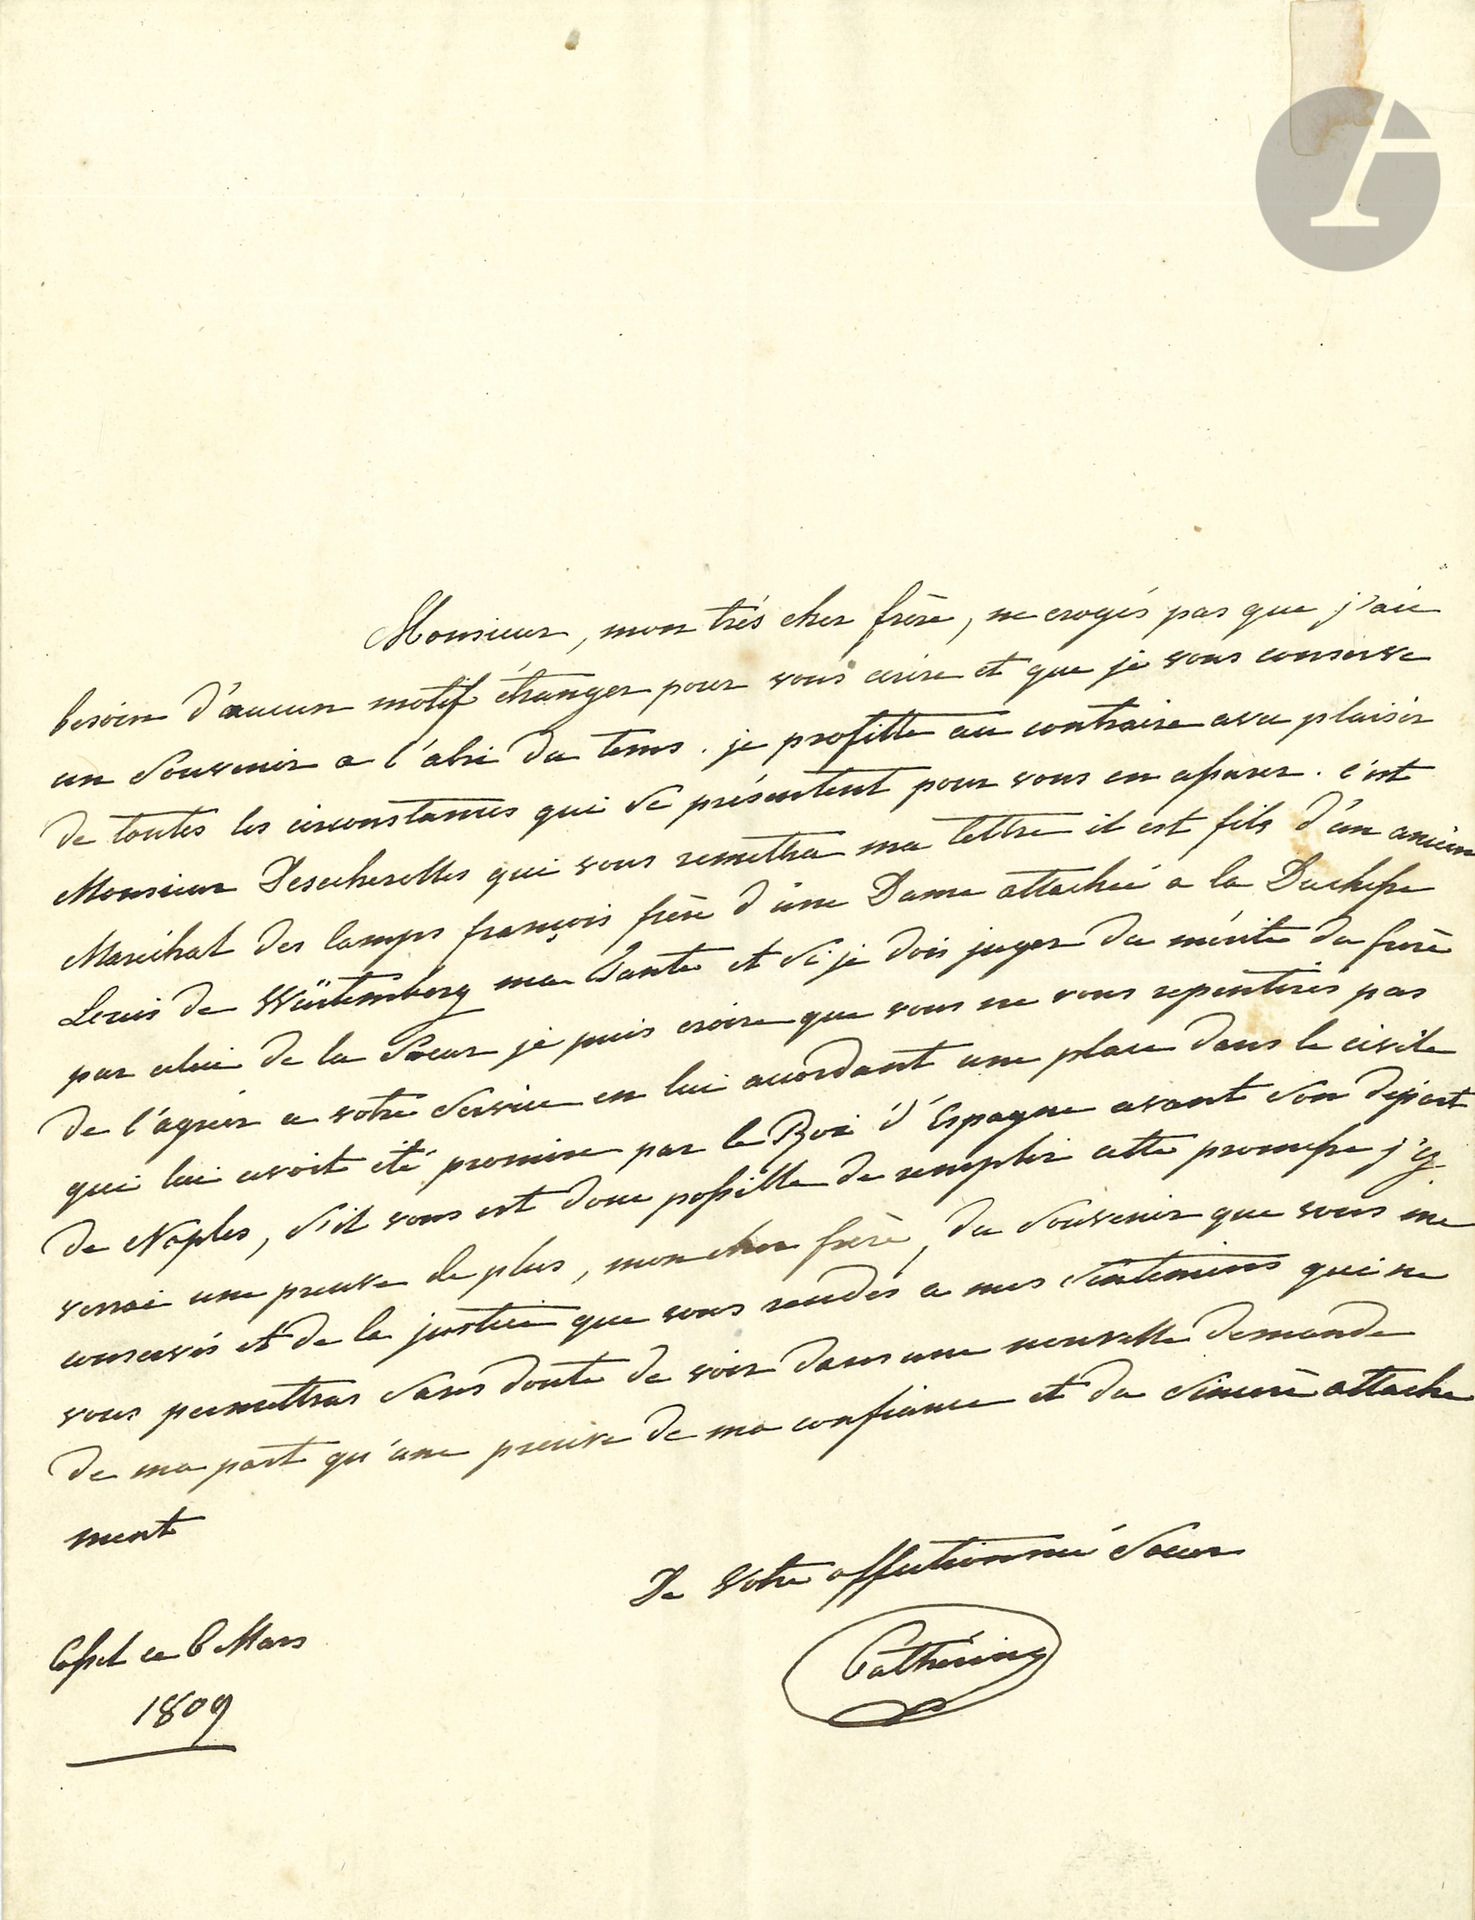 Monsieur, mon trés cher frère, ne croyés pas que j'aie
besoin d'aucun motif étranger pour vous ecrire et que je vous conserve
un Souvenir a l'abri du tems. je profitte au contraire avec plaisir
de toutes les circonstances qui se présentent pour vous en assurer. c'est
Monsieur Descherolles qui vous remettra ma lettre il est fils d'un ancien
Maréchal des Camps françois frère d'une Dame attachée a la Duchesse
Louis de Würtemberg ma Tante et si je dois juger du mérite du frere
par celui de la Soeur je puis croire que vous ne vous repentirés pas
de l'agréer a votre Service en lui accordant une place dans le civile
qui lui avoit été promise par le Roi d'Espagne avant son départ
de Naples, s'il vous est donc possible de remplir cette promesse j'y
verrai une preuve de plus, mon cher frère, du Souvenir que vous me
conservés et de la justice que vous rendés a mes Sentimens qui ne
vous permettras sans doute de voir dans une nouvelle demande
de ma part qu'une preuve de ma confiance et du Sincere attache
ment
De Votre affectionnée Soeur
Cathérine
Cassel ce 6 Mars
1809